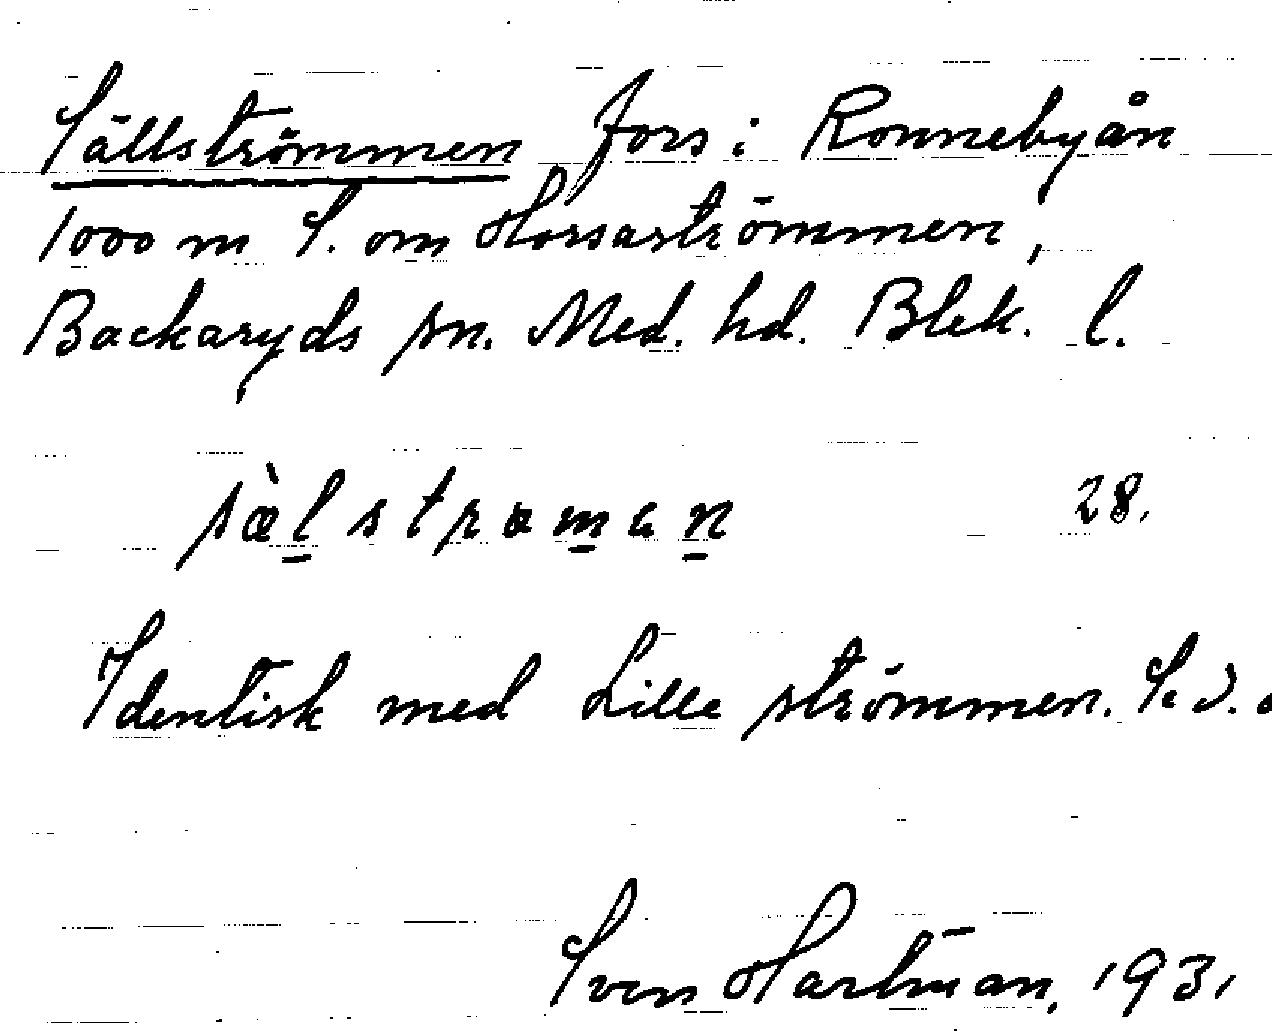 Sällströmmen fors i Ronnebyån
1000 m S. om Horsaströmmen,
Backaryds sn. Med. hd. Blek. l.
sæ̀lstrøman 28.
Identisk med Lille strömmen. Se d. o
Sven Hartman, 1931